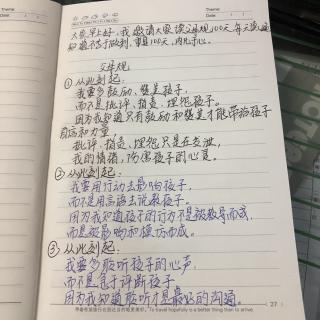 Theme:
Date:
Theme:
Date:
大家早上好，我邀请大家读父母规100天，每天读
知道不等于做到，重复100天，内化于心。
父母规
①从此刻起：
我要多鼓励、赞美孩子，
而不是批评、指责、埋怨孩子。
因为我知道只有鼓励和赞美才能带给孩子
自信和力量
批评、指责、埋怨只是在发泄
我的情绪，伤害孩子的心灵。
②从此刻起：
我要用行动去影响孩子，
而不是用言语去说教孩子。
因为我知道孩子的行为不是被教导而成，
而是被影响和模仿而成。
③从此刻起：
我要多聆听孩子的心声，
而不是急于评断孩子。
因为我知道聆听才是最好的沟通。
带着希望旅行比到达目的地更美好。To travel hopefully is a better thing than to arrive.
27